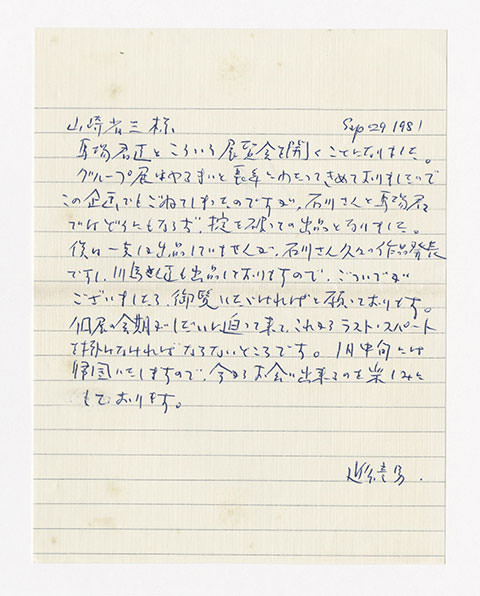 山崎省三様 Sep 29 1981
馬場君達とこういう展覧会を開くことになりました。
グループ展はやるまいと長年にわたってきめておりましたので
この企画でもごねてしまったのですが、石川さんと馬場君
ではどうにもならず 掟を破っての出品となりました。
は出品していませんが、石川さん久々の作品発表
ですし、川島さん達も出品しておりますので、ついでが
ございましたら、御覧いただければと願っております。
個展の会期がしだいに迫って来て、これからラスト・スパート
をかけなければならないところです。1月中旬には
帰国いたしますので、今からお会い出来るのを楽しみに
しております。